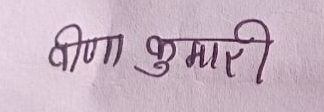 वीणा कुमारी